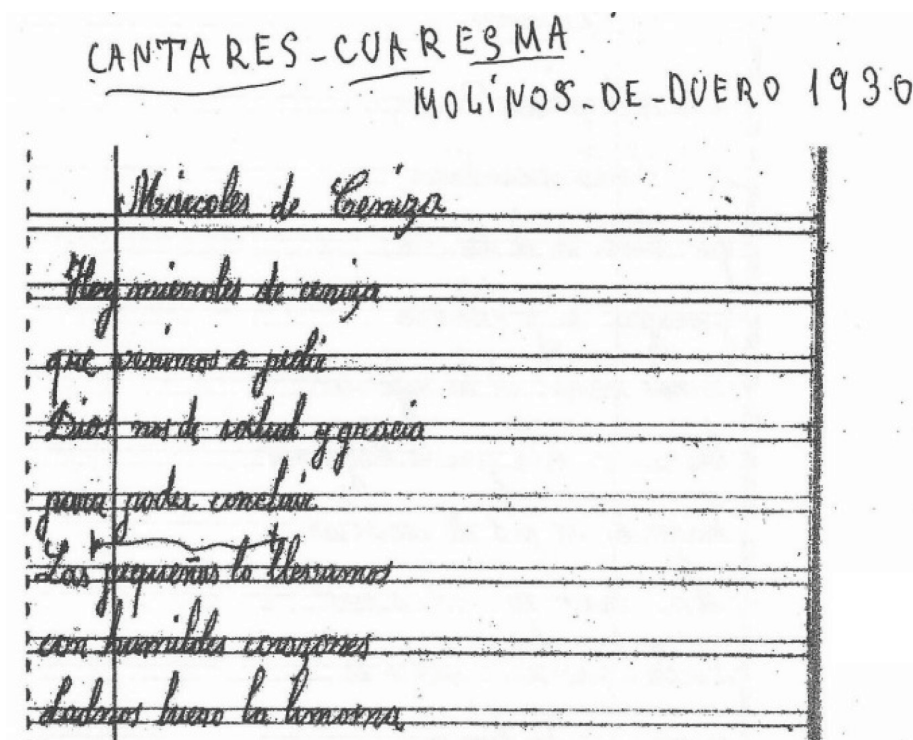 CANTARES-CUARESMA
MOLINOS-DE-DUERO 1930
Miércoles de Ceniza
Hoy miercoles de ceniza
que venimos a pedir
Dios nos de salud y gracia
para poder concluir
Las pequeñas lo llevamos
con humildes corazones
dadnos hueso la limosna